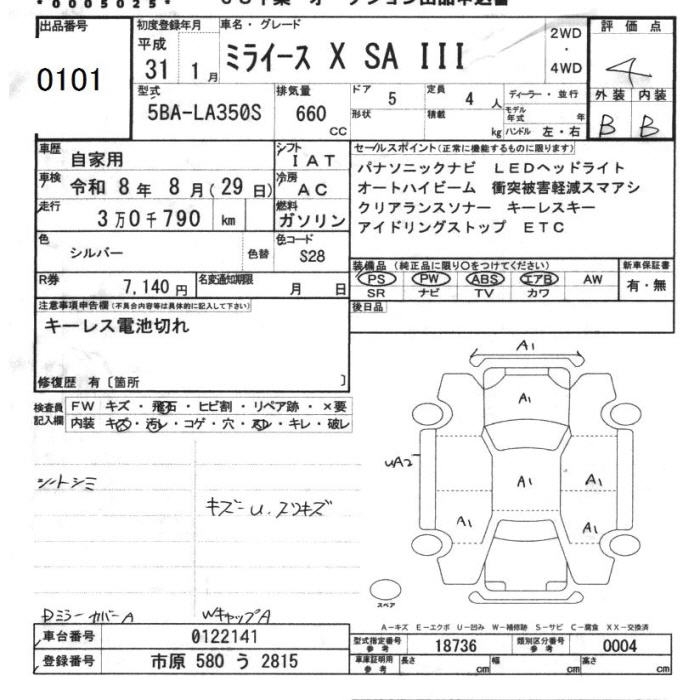 * 0 0 0 5 0 2 5 *
出品番号
0101
初度登録年月
平成
31 1 月
車名・グレード
ミライース X SA III
2WD
・
4WD
評価点
4
外装 内装
B B
型式
5BA-LA350S
排気量
660
CC
ドア
5
定員
4 人
ディーラー・並行
形状
積載
kg
モデル年式
年
ハンドル 左・右
車歴
自家用
シフト
I AT
車検
令和 8 年 8 月 ( 29 日)
冷房
AC
走行
3 万 0 千 790 km
燃料
ガソリン
色
シルバー
色替
色コード
S28
R券
7,140 円
名変通知期限
月 日
セールスポイント(正常に機能するものに限ります)
パナソニックナビ LEDヘッドライト
オートハイビーム 衝突被害軽減スマアシ
クリアランスソナー キーレスキー
アイドリングストップ ETC
装備品 (純正品に限り○をつけてください)
PS PW ABS エアB AW
SR ナビ TV カワ
新車保証書
有・無
後日品
注意事項申告欄(不具合内容等は具体的に記入して下さい)
キーレス電池切れ
修復歴 有〔箇所 〕
検査員
記入欄
FW キズ・飛石・ヒビ割・リペア跡・×要
内装 キズ・汚レ・コゲ・穴・スレ・キレ・破レ
シートシミ
キズ U. スリキズ
Dミラーカバー A
Wキャップ A
A1
A1
UA2
A1
A1
A1
A1
スペア
A-キズ E-エクボ U-凹み W-補修跡 S-サビ C-腐食 XX-交換済
車台番号
0122141
登録番号
市原 580 う 2815
型式指定番号
参考
18736
類別区分番号
参考
0004
車庫証明用
参考
長さ cm
幅 cm
高さ cm